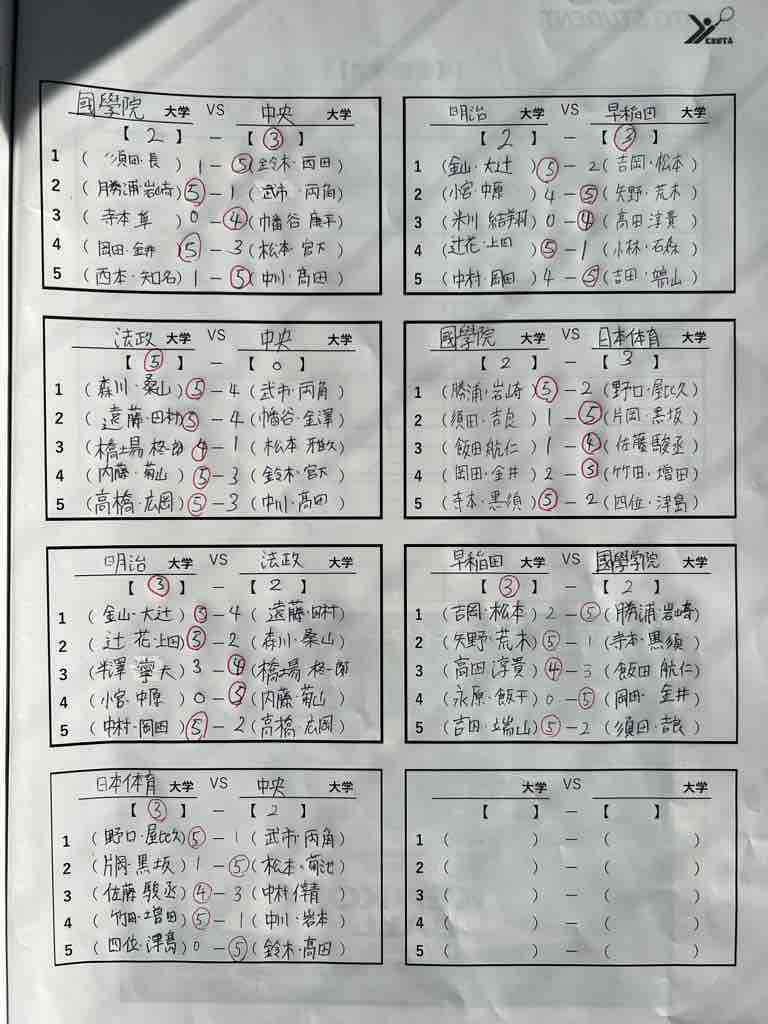 STUDENT
KSBTA
國學院 大学 VS 中央 大学
【 2 】 － 【 ③ 】
1 (須田・長) 1 － ⑤ (鈴木・西田)
2 (勝浦・岩崎) ⑤ － 1 (武市・丙角)
3 (寺本 隼) 0 － ④ (幡谷 康平)
4 (岡田・金井) ⑤ － 3 (松本・宮下)
5 (西本・知名) 1 － ⑤ (中川・髙田)
明治 大学 VS 早稲田 大学
【 2 】 － 【 ③ 】
1 (金山・大辻) ⑤ － 2 (吉岡・松本)
2 (小宮・中原) 4 － ⑤ (矢野・荒木)
3 (米川 結翔) 0 － ④ (高田 淳貴)
4 (辻花・上田) ⑤ － 1 (小林・石森)
5 (中村・岡田) 4 － ⑤ (吉田・端山)
法政 大学 VS 中央 大学
【 ⑤ 】 － 【 0 】
1 (森川・桑山) ⑤ － 4 (武市・丙角)
2 (遠藤・田村) ⑤ － 4 (幡谷・金澤)
3 (橋場 柊一郎) ④ － 1 (松本 雅久)
4 (内藤・菊山) ⑤ － 3 (鈴木・宮下)
5 (高橋・広岡) ⑤ － 3 (中川・髙田)
國學院 大学 VS 日本体育 大学
【 2 】 － 【 3 】
1 (勝浦・岩崎) ⑤ － 2 (野口・屋比久)
2 (須田・吉良) 1 － ⑤ (片岡・黒坂)
3 (飯田 航仁) 1 － ④ (佐藤 駿丞)
4 (岡田・金井) 2 － ⑤ (竹田・増田)
5 (寺本・黒須) ⑤ － 2 (四位・津島)
明治 大学 VS 法政 大学
【 ③ 】 － 【 2 】
1 (金山・大辻) ⑤ － 4 (遠藤・田村)
2 (辻花・上田) ⑤ － 2 (森川・桑山)
3 (半澤 寧大) 3 － ④ (橋場 柊一郎)
4 (小宮・中原) 0 － ⑤ (内藤・菊山)
5 (中村・岡田) ⑤ － 2 (高橋・広岡)
早稲田 大学 VS 國學学院 大学
【 ③ 】 － 【 2 】
1 (吉岡・松本) 2 － ⑤ (勝浦・岩崎)
2 (矢野・荒木) ⑤ － 1 (寺本・黒須)
3 (高田 淳貴) ④ － 3 (飯田 航仁)
4 (永原・飯干) 0 － ⑤ (岡田・金井)
5 (吉田・端山) ⑤ － 2 (須田・吉良)
日本体育 大学 VS 中央 大学
【 ③ 】 － 【 2 】
1 (野口・屋比久) ⑤ － 1 (武市・丙角)
2 (片岡・黒坂) 1 － ⑤ (松本・菊池)
3 (佐藤 駿丞) ④ － 3 (中村 倖青)
4 (竹田・増田) ⑤ － 1 (中川・岩本)
5 (四位・津島) 0 － ⑤ (鈴木・髙田)
大学 VS 大学
【 】 － 【 】
1 ( ) － ( )
2 ( ) － ( )
3 ( ) － ( )
4 ( ) － ( )
5 ( ) － ( )